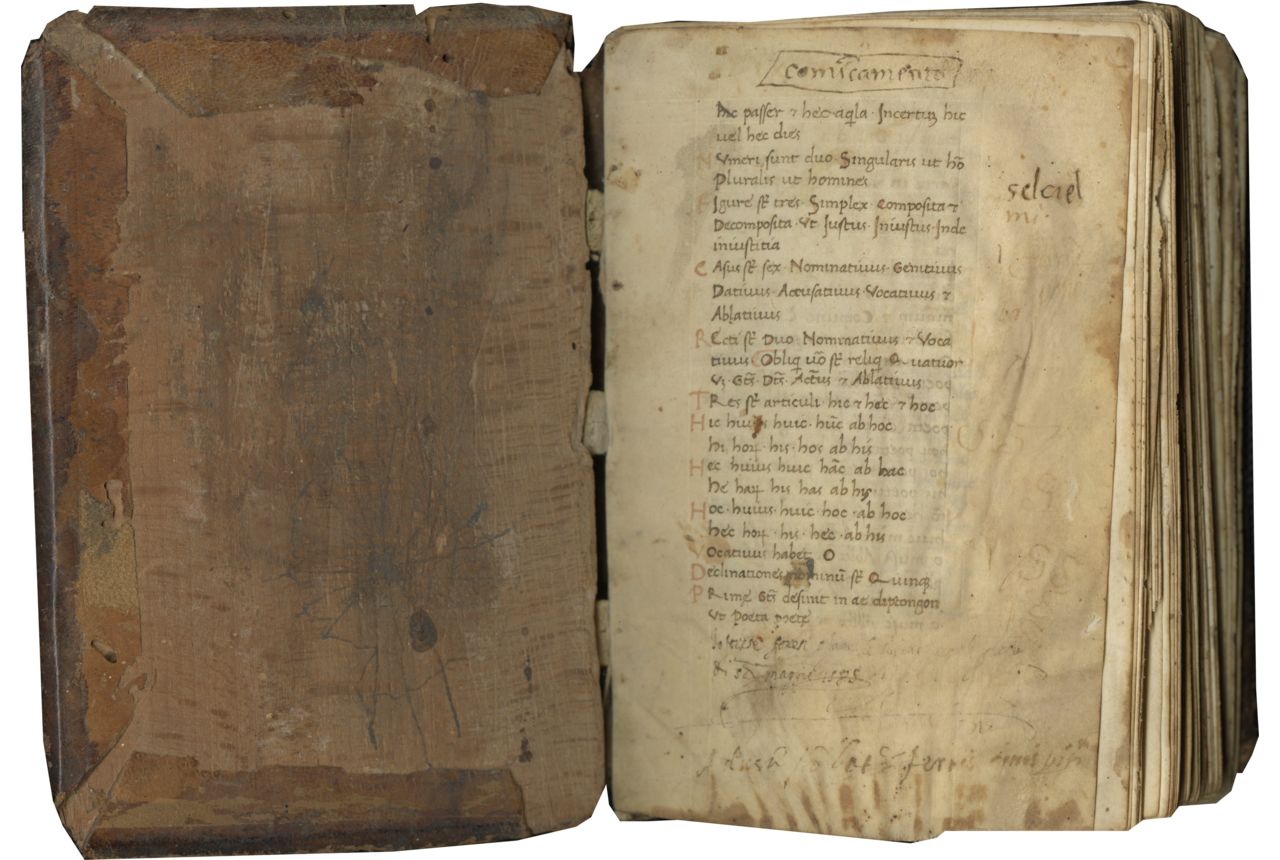 hic passer ⁊ hec aq̇la · Incertuʒ hic
uel hec dies
Numeri sunt duo · Singularis ut hō
Pluralis ut homines
Figure st̄ tres · Simplex · Composita ⁊
Decomposita · Vt Justus · Iniustus · Inde
iniustitia
CAsus st̄ sex · Nominatiuus · Genitiuus
Datiuus · Accusatiuus · Vocatiuus ⁊
Ablatiuus
REcti st̄ Duo · Nominatiuus ⁊ Voca
tiuus Obliq uo̅ st̄ reliq Quatuor
Vʒ · Gt̄s · Dt̄s · Act̄us ⁊ Ablatiuus
TRes st̄ articuli · hic ⁊ hec ⁊ hoc
Hic huius huic · hūc ab hoc
hi hoꝝ · his · hos ab his
Hec huius huic hāc ab hac
he haꝝ his has ab his
Hoc · huius · huic · hoc · ab hoc
hec hoꝝ · his · hec · ab his
Vocatiuus habet O
Declinationes nominū st̄ Quinqꝫ
PRime Gt̄s desinit in ae diptongon
Vt Poeta poete
selciel